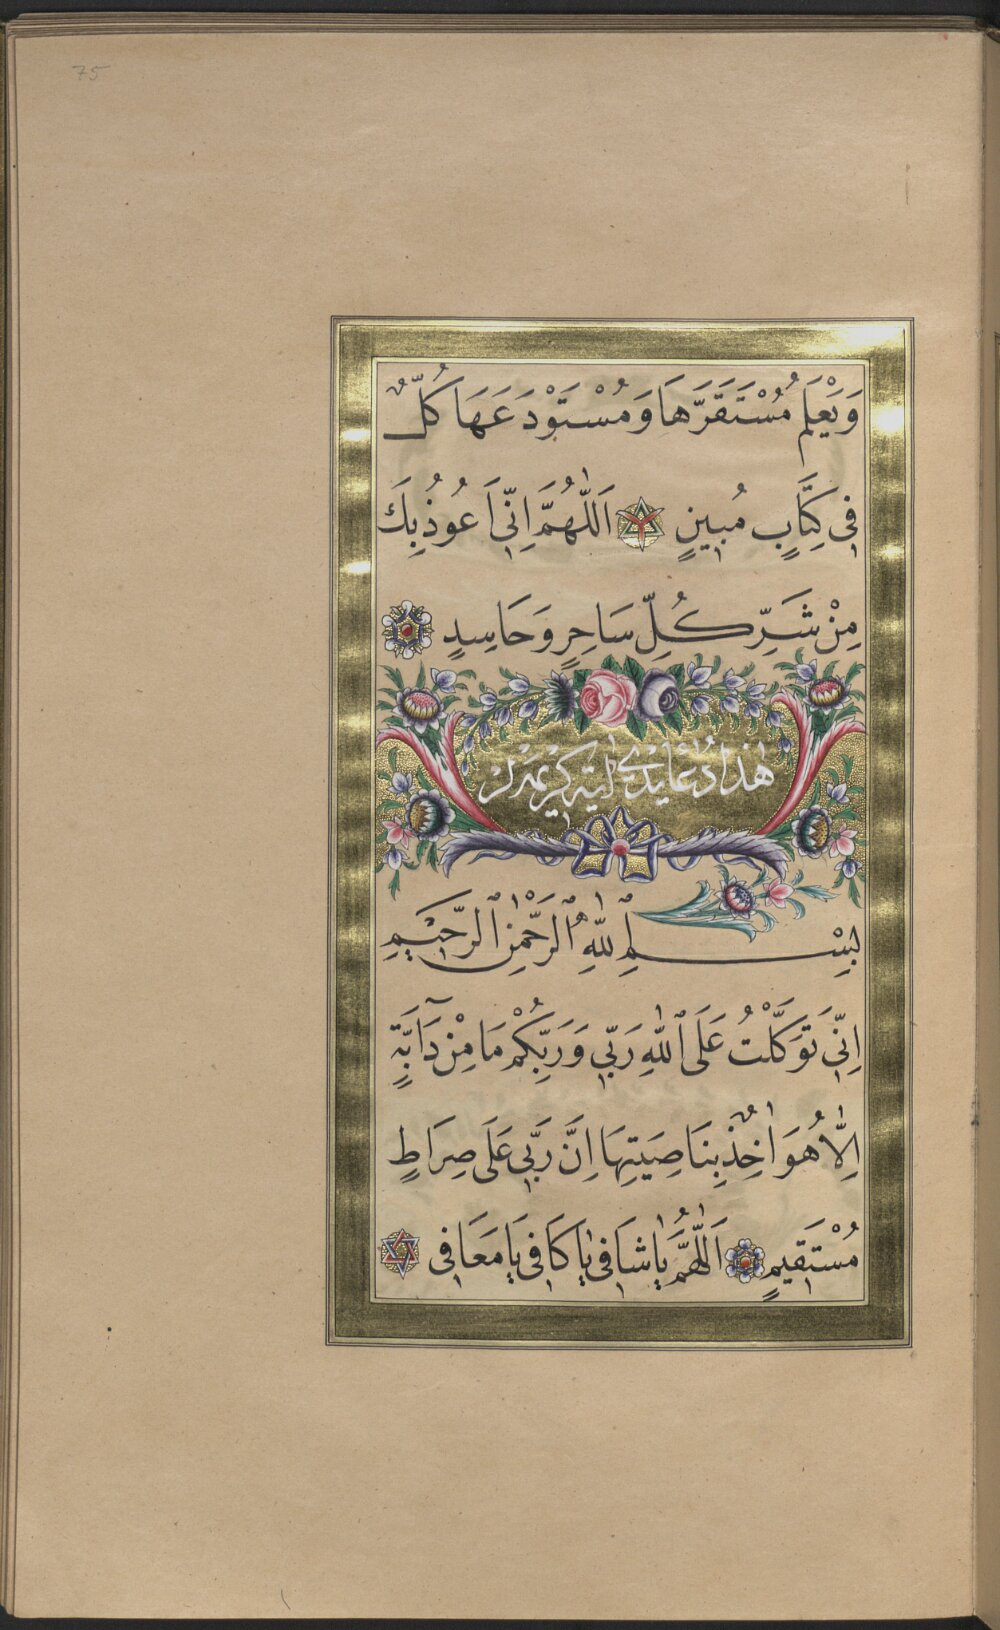 75
وَيَعْلَمُ مُسْتَقَرَّهَا وَمُسْتَوْدَعَهَا كُلٌّ
فِى كِتَابٍ مُبِينٍ اَللّٰهُمَّ اِنِّى اَعُوذُ بِكَ
مِنْ شَرِّ كُلِّ سَاحِرٍ وَحَاسِدٍ
هٰذَا دُعَا يَدِى اٰيَة كَرِيمَه لَرْ
بِسْمِ ٱللّٰهِ ٱلرَّحْمٰنِ ٱلرَّحِيمِ
اِنِّى تَوَكَّلْتُ عَلَى ٱللّٰهِ رَبِّى وَرَبِّكُمْ مَا مِنْ دَآبَّةٍ
اِلَّا هُوَ اٰخِذٌ بِنَاصِيَتِهَا اِنَّ رَبِّى عَلَى صِرَاطٍ
مُسْتَقِيمٍ اَللّٰهُمَّ يَا شَافِى يَا كَافِى يَا مَعَافِى